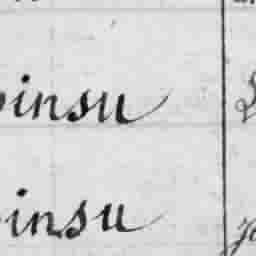 insu
insu